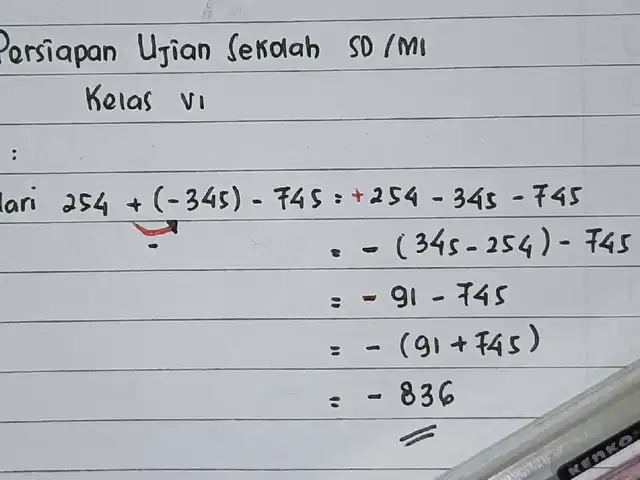 Persiapan Ujian Sekolah SD/MI
Kelas VI
:
dari 254 + (-345) - 745 = +254 - 345 - 745
-
= - (345 - 254) - 745
= - 91 - 745
= - (91 + 745)
= - 836
KENKO